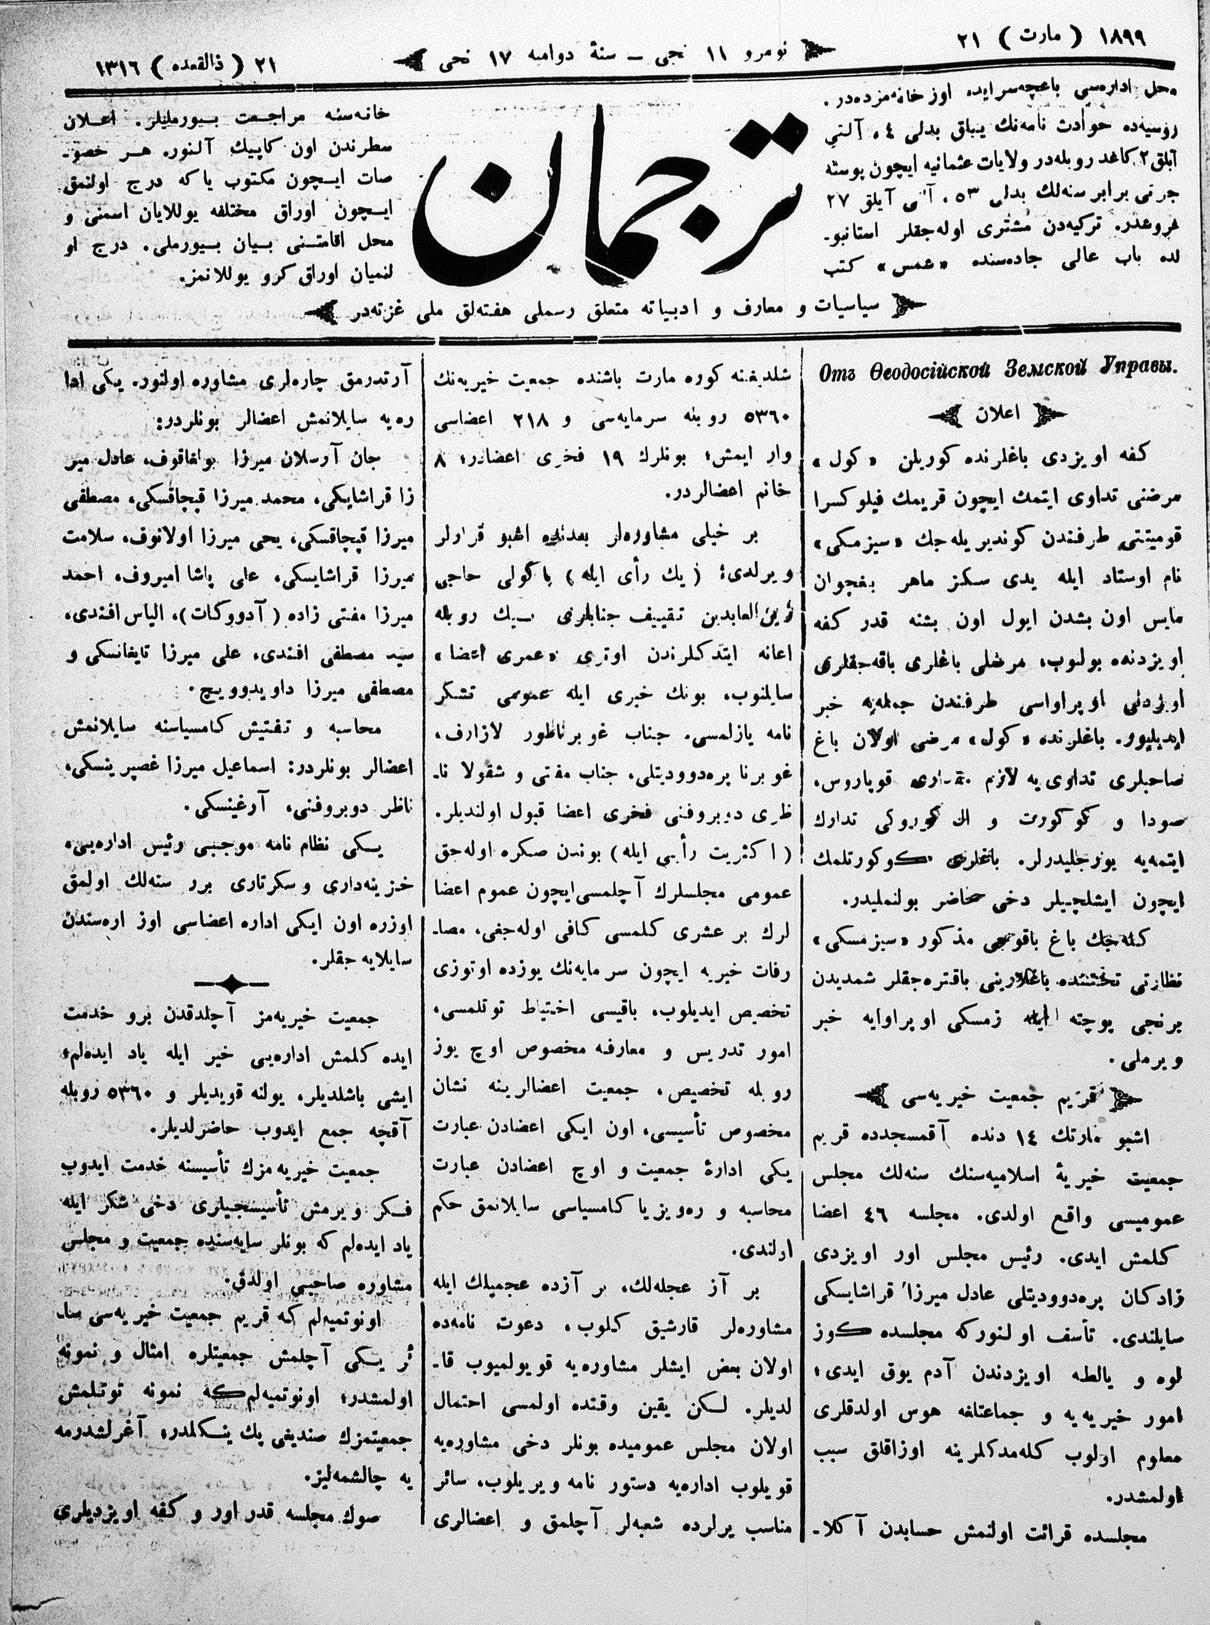 ١٨٩٩ ( مارت ) ٢١
نومرو ١١ نجى ــ سنۀ دواميه ١٧ نجى
٢١ ( ذالقعده ) ١٣١٦
محل اداره‌سى باغچه‌سرايده اوز خانه‌مزده‌در.
روسيه‌ده حوادث نامه‌نك يبلق بدلى ٤، آلتى
آيلق ٢ كاغد روبله‌در ولايات عثمانيه ايچون پوسته
جرتى برابر سنه‌لك بدلى ٥٣، آلتى آيلق ٢٧
غروشدر. تركيه‌دن مشترى اوله‌جقلر استانبو-
لده باب عالى جاده‌سنده «شمس» كتب
ترجمان
خانه‌سنه مراجعت بيورمليلر. اعلان
سطرندن اون كاپيك آلنور. هر خصو-
صات ايچون مكتوب ياكه درج اولنمق
ايچون اوراق مختلفه يوللايان اسمنى و
محل اقامتنى بيان بيورملى. درج او
لنميان اوراق كرو يوللانمز.
سياسيات و معارف و ادبياته متعلق رسملى هفته‌لق ملى غزته‌در
Отъ Ѳеодосійской Земской Управы.
اعلان
كفه اويزدى باغلرنده كوريلن «كول»
مرضنى تداوى ايتمك ايچون قريمك فيلوكسرا
قوميتتى طرفندن كوندريله‌جك «سيزمسكى»
نام اوستاد ايله يدى سكز ماهر بغچوان
مايس اون بشدن ايول اون بشنه قدر كفه
اويزدنده بولنوب، مرضلى باغلرى باقه‌جقلرى
اويزدنى اوپراواسى طرفندن جمله‌يه خبر
ايديليور. باغلرنده «كول» مرضى اولان باغ
صاحبلرى تداوى‌يه لازم مقدارى قوپاروس،
صودا و كوكورت و اك كوروكى تدارك
ايتمه‌يه بورجليدرلر. باغلرى كوكورتلمك
ايچون ايشلچيلر دخى حاضر بولنمليدر.
كله‌جك باغ باقوجى مذكور «سيزمسكى»
نظارتى تحتنده باغلارينى باقتره‌جقلر شمديدن
برنجى پوچته ايله زمسكى اوپراوايه خبر
ويرملى.
قريم جمعيت خيريه‌سى
اشبو مارتك ١٤ دنده آقمسجدده قريم
جمعيت خيريۀ اسلاميه‌سنك سنه‌لك مجلس
عموميسى واقع اولدى. مجلسه ٤٦ اعضا
كلمش ايدى. رئيس مجلس اور اويزدى
زادكان پره‌دوديتلى عادل ميرزا قراشايسكى
سايلندى. تأسف اولنوركه مجلسده كوز
لوه و يالطه اويزدندن آدم يوق ايدى؛
امور خيريه‌يه و جماعتلغه هوس اولدقلرى
معلوم اولوب كله‌مدكلرينه اوزاقلق سبب
اولمشدر.
مجلسده قرائت اولنمش حسابدن آكلا-
شلديغنه كوره مارت باشنده جمعيت خيريه‌نك
٥٣٦٠ روبله سرمايه‌سى و ٢١٨ اعضاسى
وار ايمش؛ بونلرك ١٩ فخرى اعضادر؛ ٨
خانم اعضالردر.
بر خيلى مشاوره‌لر بعدنده اشبو قرارلر
ويرلدى: (يك رأى ايله) باكولى حاجى
زين العابدين تقييف جنابلرى بيك روبله
اعانه ايتدكلرندن اوترى «عمرى اعضا»
سايلنوب، بونك خبرى ايله عمومى تشكر
نامه يازلمسى. جناب غوبرناطور لازارف،
غوبرنا پره‌دوديتلى، جناب مفتى و شقولا نا-
ظرى دوبروفنى فخرى اعضا قبول اولنديلر.
(اكثريت رأيى ايله) بوندن صكره اوله‌جق
عمومى مجلسلرك آچلمسى‌ايچون عموم اعضا
لرك بر عشرى كلمسى كافى اوله‌جغى، مصا-
رفات خيريه ايچون سرمايه‌نك يوزده اوتوزى
تخصيص ايديلوب، باقيسى احتياط توتلمسى،
امور تدريس و معارفه مخصوص اوچ يوز
روبله تخصيص، جمعيت اعضالرينه نشان
مخصوص تأسيسى، اون ايكى اعضادن عبارت
يكى ادارۀ جمعيت و اوچ اعضادن عبارت
محاسبه و ره‌ويزيا كامسياسى سايلانمق حكم
اولندى.
بر آز عجله‌لك، بر آزده عجميلك ايله
مشاوره‌لر قارشيق كلوب، دعوت نامه‌ده
اولان بعض ايشلر مشاوره‌يه قويولميوب قا-
لديلر. لكن يقين وقتده اولمسى احتمال
اولان مجلس عموميده بونلر دخى مشاوره‌يه
قويلوب اداره‌يه دستور نامه ويريلوب، سائر
مناسب يرلرده شعبه‌لر آچلمق و اعضالرى
آرتدرمق چاره‌لرى مشاوره اولنور. يكى ادا
ره‌يه سايلانمش اعضالر بونلردر:
جان آرسلان ميرزا بولغاقوف، عادل مير
زا قراشايسكى، محمد ميرزا قپچاقسكى، مصطفى
ميرزا قپچاقسكى، يحى ميرزا اولانوف، سلامت
ميرزا قراشايسكى، على پاشا اميروف، احمد
ميرزا مفتى زاده (آدووكات)، الياس افندى،
سيد مصطفى افندى، على ميرزا تايغانسكى و
مصطفى ميرزا داويدوويچ.
محاسبه و تفتيش كامسياسنه سايلانمش
اعضالر بونلردر: اسماعيل ميرزا غصپرينسكى،
ناظر دوبروفنى، آرغينسكى.
يكى نظام نامه موجبى رئيس اداره‌يى،
خزينه‌دارى و سكرتارى برر سنه‌لك اولمق
اوزره اون ايكى اداره اعضاسى اوز اره‌سندن
سايلايه جقلر.
جمعيت خيريه‌مز آچلدقدن برو خدمت
ايده كلمش اداره‌يى خير ايله ياد ايده‌لم؛
ايشى باشلديلر، يولنه قويديلر و ٥٣٦٠ روبله
آقچه جمع ايدوب حاضرلديلر.
جمعيت خيريه‌مزك تأسيسنه خدمت ايدوب
فكر ويرمش تأسيسجيلرى دخى شكر ايله
ياد ايده‌لم كه بونلر سايه‌سنده جمعيت و مجلس
مشاوره صاحبى اولدق.
اونوتميه‌لم كه قريم جمعيت خيريه‌سى سا-
ئر يكى آچلمش جمعيتلره امثال و نمونه
اولمشدر؛ اونوتميه‌لم‌كه نمونه توتلمش
جمعيتمزك صنديغى پك ينكلدر؛ آغرلشدرمه
يه چالشمه‌ليز.
صوك مجلسه قدر اور و كفه اويزديلرى